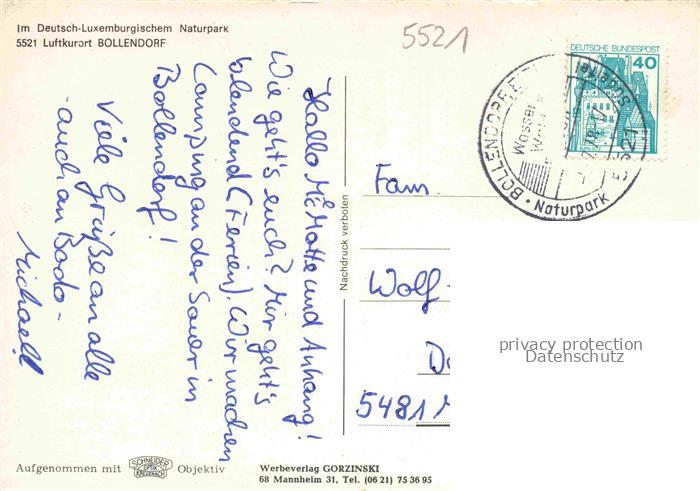 Im Deutsch-Luxemburgischem Naturpark
5521 Luftkurort BOLLENDORF
5521
DEUTSCHE BUNDESPOST
40
BOLLENDORF
Südeifel
Wasser
Wald
5521
Naturpark
Hallo und Anhang!
Wie geht's euch? Mir geht's
blendend (Ferien). Wir machen
Camping an der Sauer in
Bollendorf!
Viele Grüße an alle
- auch an Bodo -
Michael!
Nachdruck verboten
Fam.
Wolf-
5481
privacy protection
Datenschutz
Aufgenommen mit SCHNEIDER OPTIK KREUZNACH Objektiv
Werbeverlag GORZINSKI
68 Mannheim 31, Tel. (06 21) 75 36 95